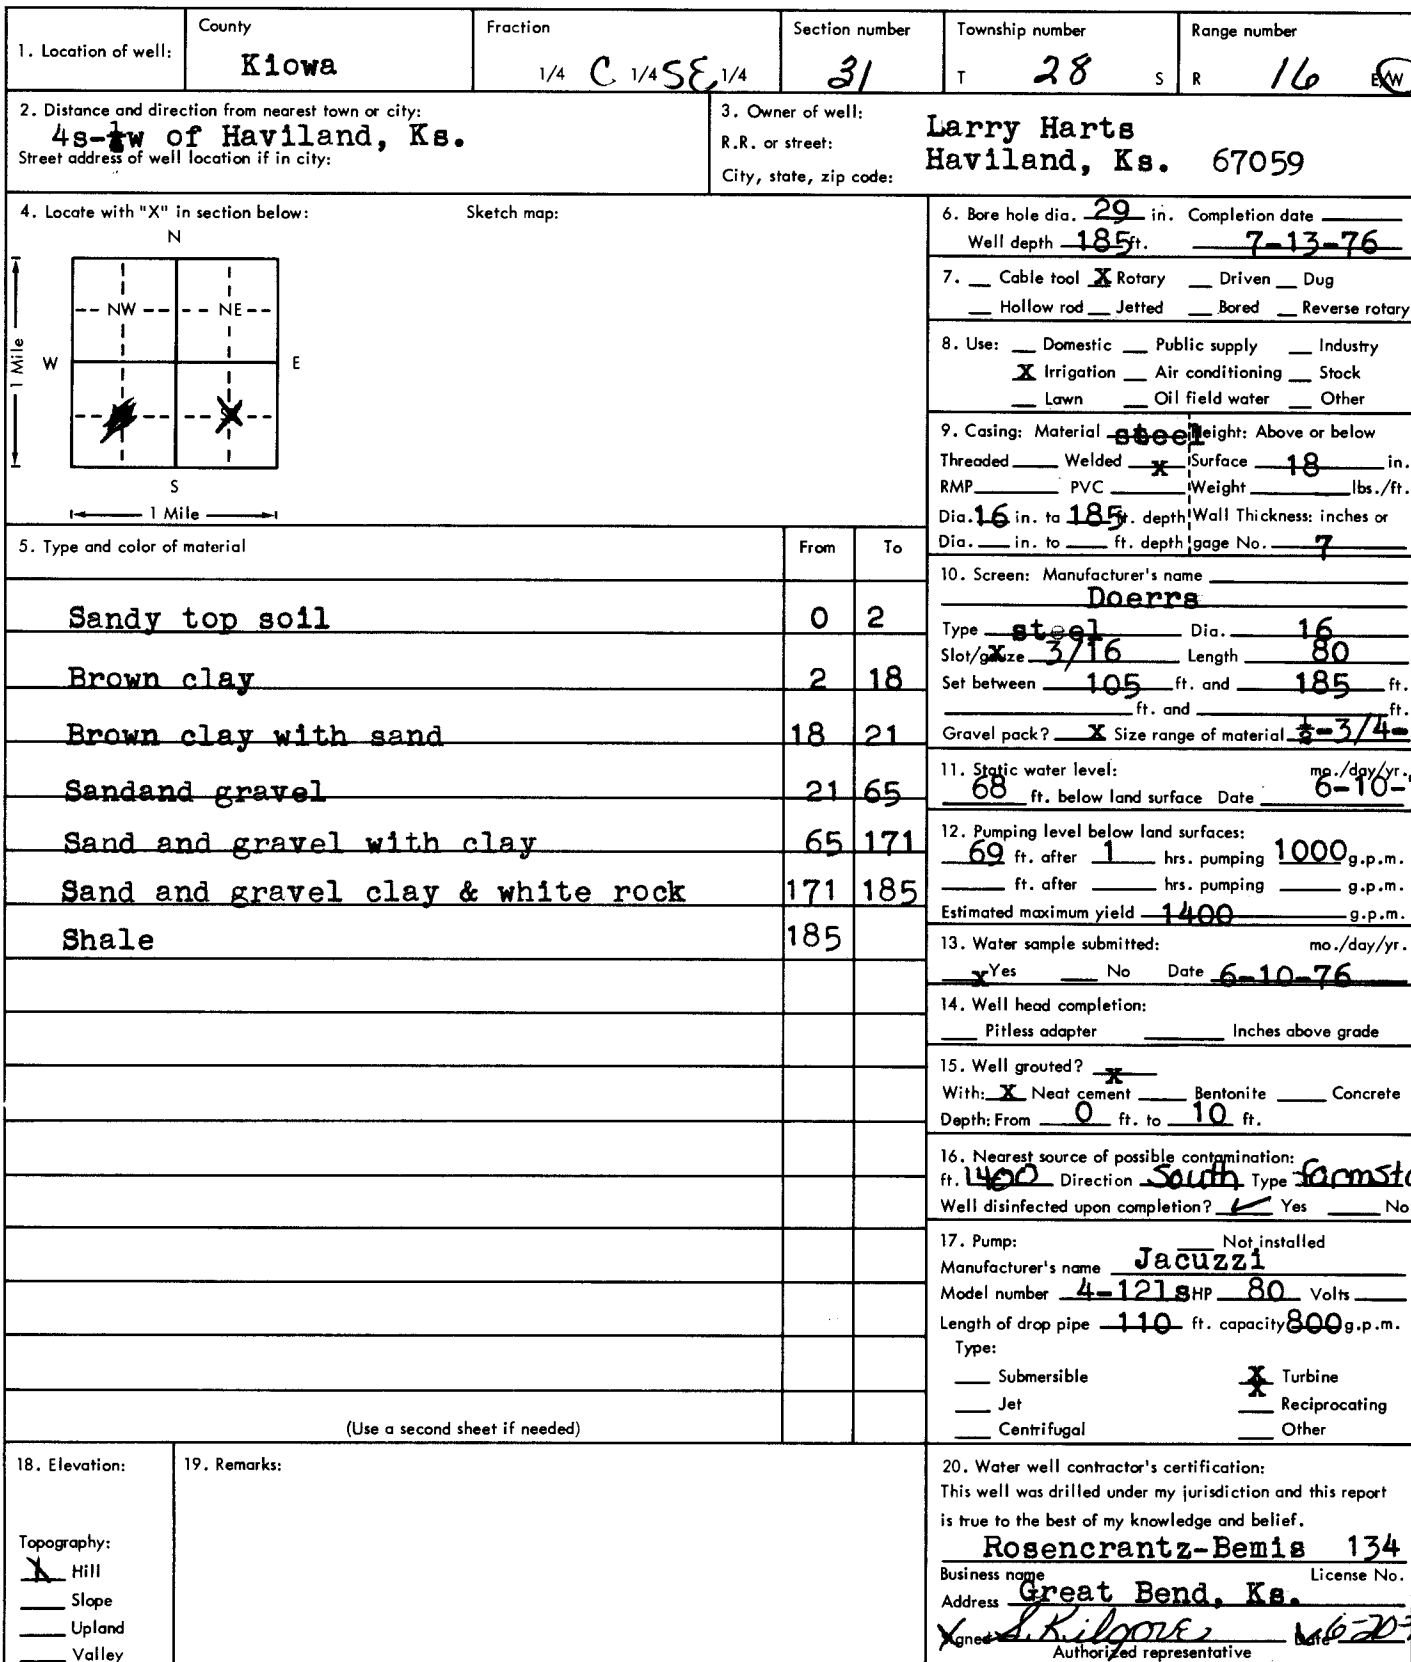 1. Location of well:
County
Kiowa
Fraction
1/4 C 1/4 SE 1/4
Section number
31
Township number
T 28 S
Range number
R 16 E/W
2. Distance and direction from nearest town or city:
4s-½w of Haviland, Ks.
Street address of well location if in city:
3. Owner of well:
R.R. or street:
City, state, zip code:
Larry Harts
Haviland, Ks. 67059
4. Locate with "X" in section below:
Sketch map:
N
NW NE
W E
1 Mile
X
S
1 Mile
5. Type and color of material From To
Sandy top soil 0 2
Brown clay 2 18
Brown clay with sand 18 21
Sandand gravel 21 65
Sand and gravel with clay 65 171
Sand and gravel clay & white rock 171 185
Shale 185
(Use a second sheet if needed)
6. Bore hole dia. 29 in. Completion date
Well depth 185 ft. 7-13-76
7. Cable tool X Rotary Driven Dug
Hollow rod Jetted Bored Reverse rotary
8. Use: Domestic Public supply Industry
X Irrigation Air conditioning Stock
Lawn Oil field water Other
9. Casing: Material steel Height: Above or below
Threaded Welded x Surface 18 in.
RMP PVC Weight lbs./ft.
Dia. 16 in. to 185 ft. depth Wall Thickness: inches or
Dia. in. to ft. depth gage No. 7
10. Screen: Manufacturer's name
Doerrs
Type steel Dia. 16
Slot/gauze 3/16 Length 80
Set between 105 ft. and 185 ft.
ft. and ft.
Gravel pack? X Size range of material ½-3/4-
11. Static water level: mo./day/yr.
68 ft. below land surface Date 6-10-
12. Pumping level below land surfaces:
69 ft. after 1 hrs. pumping 1000 g.p.m.
ft. after hrs. pumping g.p.m.
Estimated maximum yield 1400 g.p.m.
13. Water sample submitted: mo./day/yr.
x Yes No Date 6-10-76
14. Well head completion:
Pitless adapter Inches above grade
15. Well grouted? x
With: X Neat cement Bentonite Concrete
Depth: From 0 ft. to 10 ft.
16. Nearest source of possible contamination:
ft. 1400 Direction South Type farmst
Well disinfected upon completion? ✓ Yes No
17. Pump: Not installed
Manufacturer's name Jacuzzi
Model number 4-121s HP 80 Volts
Length of drop pipe 110 ft. capacity 800 g.p.m.
Type:
Submersible X Turbine
Jet X Reciprocating
Centrifugal Other
18. Elevation:
Topography:
Hill
Slope
Upland
Valley
19. Remarks:
20. Water well contractor's certification:
This well was drilled under my jurisdiction and this report
is true to the best of my knowledge and belief.
Rosencrantz-Bemis 134
Business name License No.
Address Great Bend, Ks.
Signed S. Kilgore Date 6-20-
Authorized representative